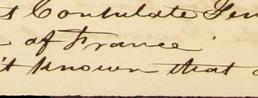 s Consulate Gen
of France
t known that